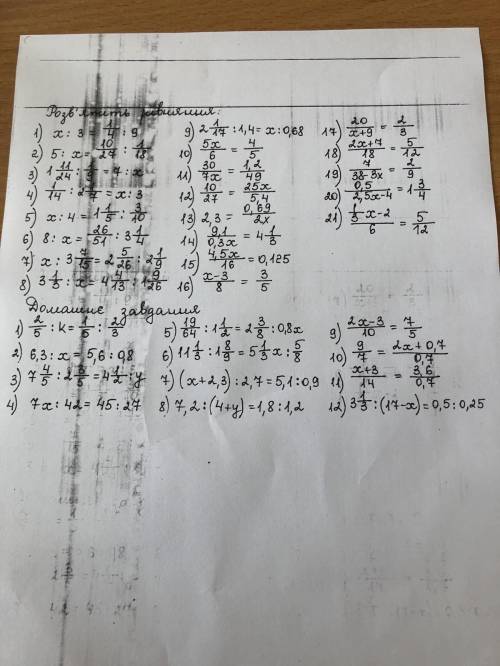 Розв'яжіть рівняння:
1) x : 3 = 1/4 : 9
2) 5 : x = 10/27 : 1/18
3) 1 11/24 : = 7 : x
4) 1/14 : = x : 3
5) x : 4 = 1 1/5 : 3/10
6) 8 : x = 26/51 : 3 1/4
7) x : 3 = 2 5/26 : 2 1/9
8) 3 1/3 : x = 4 4/13 : 1 9/26
9) 2 1/17 : 1,4 = x : 0,68
10) 5x/6 = 4/5
11) 30/7x = 1,2/49
12) 10/27 = 25x/5,4
13) 2,3 = 0,69/2x
14) 9,1/0,3x = 4 1/3
15) 4,5x/16 = 0,125
16) x-3/8 = 3/5
17) 20/x+9 = 2/3
18) 2x+7/18 = 5/12
19) 7/38-3x = 2/9
20) 0,5/2,5x-4 = 1 3/4
21) 1/3 x-2/6 = 5/12
Домашнє завдання
1) 2/5 : k = 1/5 : 20/3
2) 6,3 : x = 5,6 : 0,8
3) 7 4/5 : 2 3/5 = 4 1/2 : y
4) 7x : 42 = 45 : 27
5) 19/64 : 1 1/2 = 2 3/8 : 0,8x
6) 11 1/3 : 1 8/9 = 5 1/3 x : 5/8
7) (x+2,3) : 2,7 = 5,1 : 0,9
8) 7,2 : (4+y) = 1,8 : 1,2
9) 2x-3/10 = 7/5
10) 9/7 = 2x+0,7/0,7
11) x+3/14 = 3,6/0,7
12) 3 1/3 : (17-x) = 0,5 : 0,25